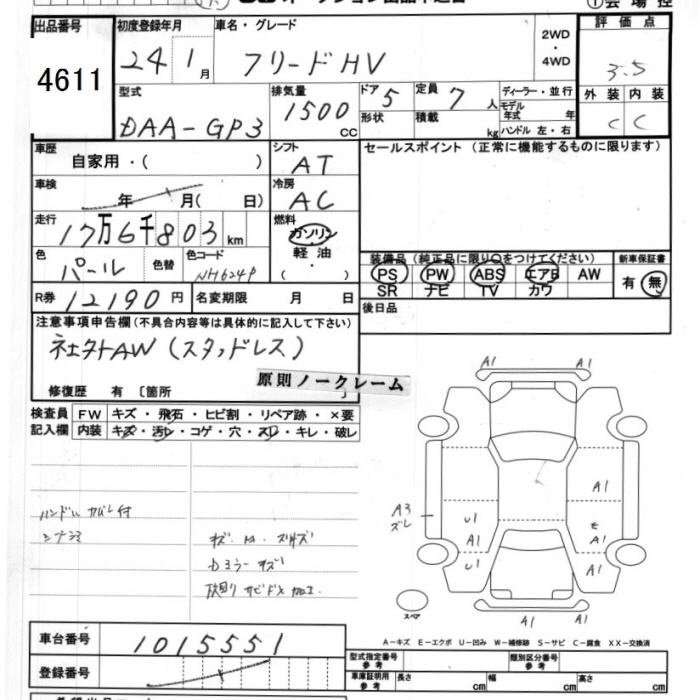 出品番号 初度登録年月 車名・グレード 評価点
4611 24 1月 フリードHV 2WD・4WD 3.5
型式 排気量 ドア 5 定員 7人 ディーラー・並行 外装 内装
DAA-GP3 1500cc 形状 積載 kg モデル年式 年 C C
ハンドル 左・右
車歴 自家用・( ) シフト AT セールスポイント (正常に機能するものに限ります)
車検 年 月( 日) 冷房 AC
走行 17万6千803km 燃料 ガソリン
軽油
・
( )
色 パール 色替 色コード NH624P
装備品 (純正品に限り○をつけてください) 新車保証書
PS PW ABS エアB AW 有 無
SR ナビ TV カワ
R券 12190円 名変期限 月 日 後日品
注意事項申告欄(不具合内容等は具体的に記入して下さい)
社外AW (スタッドレス)
原則ノークレーム
修復歴 有 〔箇所 〕
検査員 FW キズ・飛石・ヒビ割・リペア跡・×要
記入欄 内装 キズ・汚レ・コゲ・穴・スレ・キレ・破レ
A1 A1
A1
ハンドル カバー付 A3
ズレ
U1
A1
U1
A1
A1
キズ
ドミラー キズ
下廻り サビ 加工
スペア A1 A1
A-キズ E-エクボ U-凹み W-補修跡 S-サビ C-腐食 XX-交換済
車台番号 1015551
登録番号
型式指定番号 参考 類別区分番号 参考
車庫証明用 参考 長さ cm 幅 cm 高さ cm